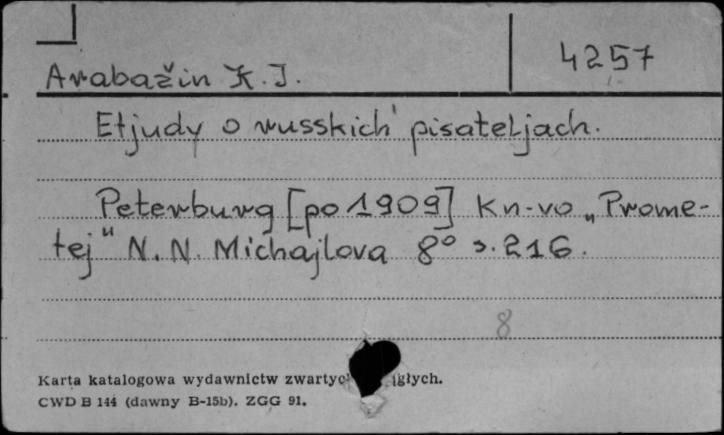 4257
Arabažin K. I.
Etjudy o russkich pisateljach.
Peterburg [po 1909] Kn-vo „Prome-
tej" N. N. Michajlova 8° s. 216.
8
Karta katalogowa wydawnictw
CWD B 144 (dawny B-15b). ZGG 91.